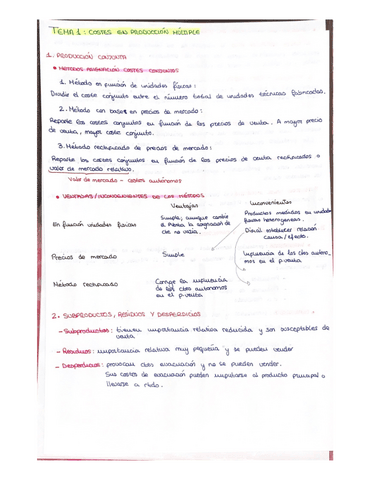 TEMA 1: COSTES EN PRODUCCIÓN MÚLTIPLE
1. PRODUCCIÓN CONJUNTA
• MÉTODOS ASIGNACIÓN COSTES CONJUNTOS
1. Método en función de unidades físicas:
Dividir el coste conjunto entre el número total de unidades técnicas fabricadas.
2. Método con bases en precios de mercado:
Reparte los costes conjuntos en función de los precios de venta. A mayor precio
de venta, mayor coste conjunto.
3. Método rectificado de precios de mercado:
Reparte los costes conjuntos en función de los precios de venta rectificados o
valor de mercado relativo.
Valor de mercado - costes autónomos
• VENTAJAS / INCONVENIENTES DE LOS MÉTODOS
Ventajas Inconvenientes
En función unidades físicas Simple, aunque cambie el P.Venta la asignación de ctes no varía. Productos medidos en unidades físicas heterogéneas.
Difícil establecer relación causa / efecto.
Precios de mercado Simple Influencia de los ctes autónomos en el p.venta
Método rectificado Corrige la influencia de los ctes autónomos en el p.venta
2. SUBPRODUCTOS, RESIDUOS Y DESPERDICIOS
- Subproductos: tienen importancia relativa reducida y son susceptibles de
venta
- Residuos: importancia relativa muy pequeña y se pueden vender
- Desperdicios: provocan ctes evacuación y no se pueden vender.
Sus costes de evacuación pueden imputarse al producto principal o
llevarse a rtdo.